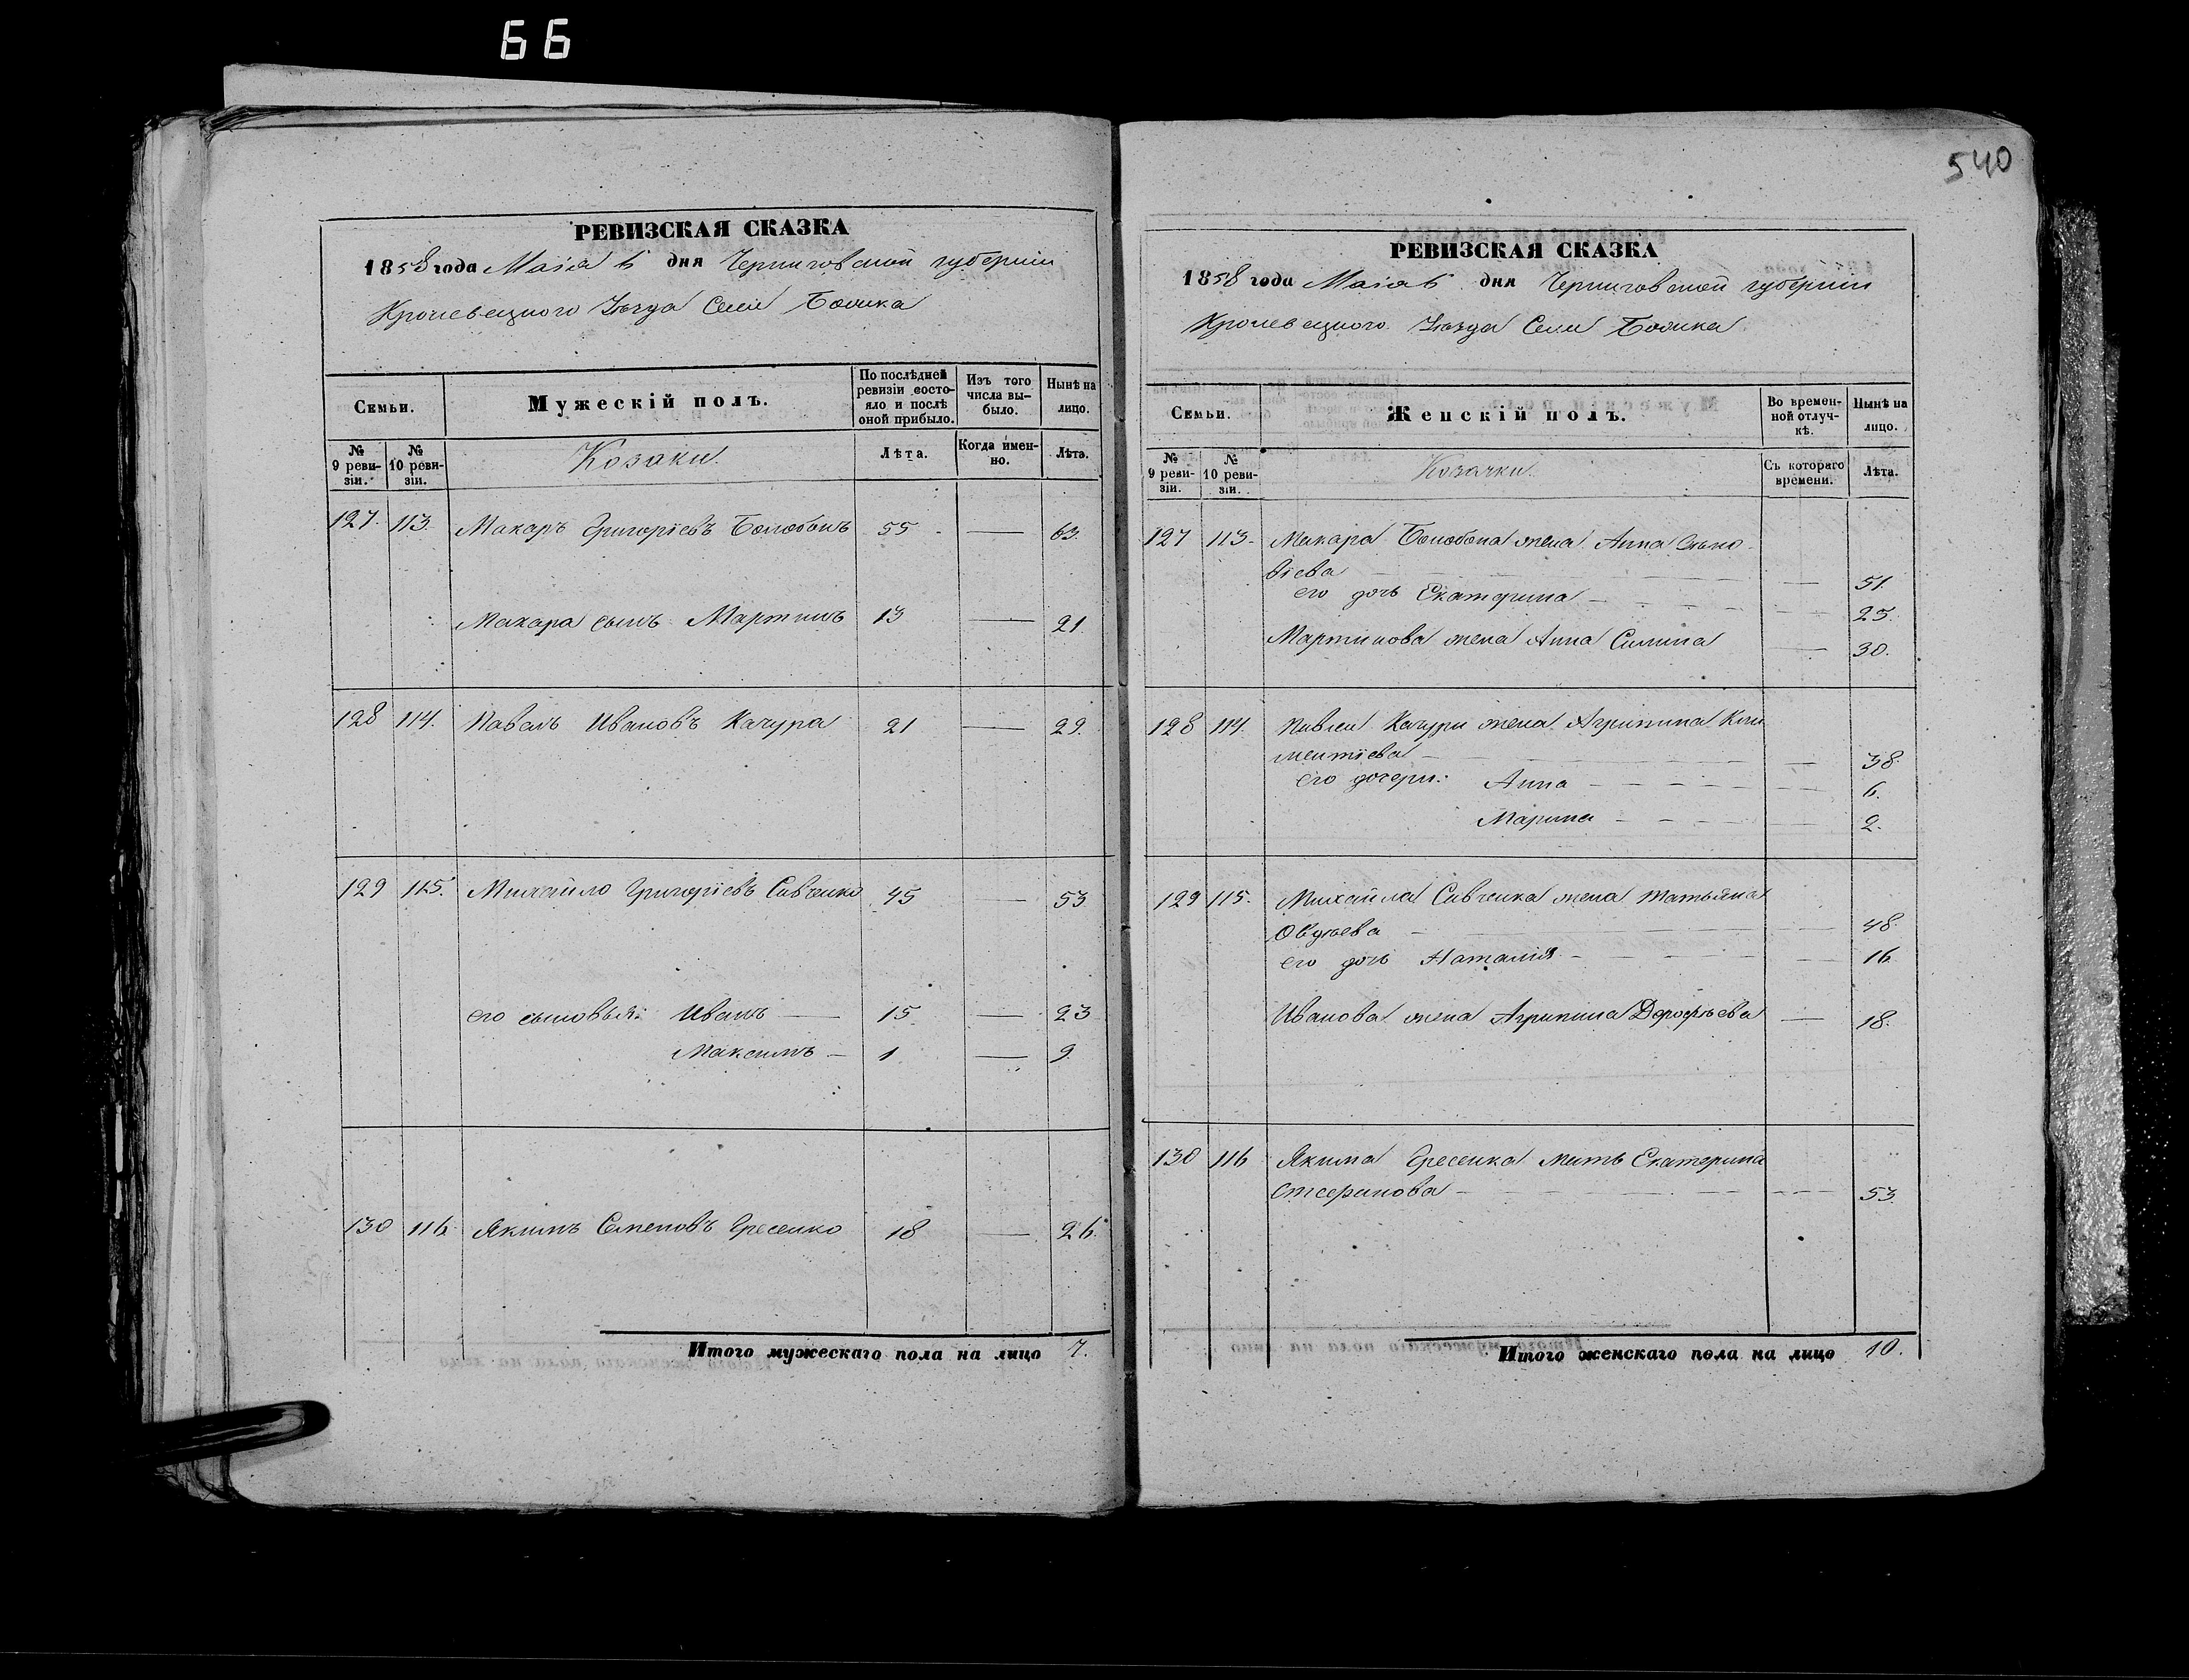 66
540
РЕВИЗСКАЯ СКАЗКА
1858 года Маія 6 дня Черниговской губерніи
Кролевецкого Уѣзда Села
Семьи. Мужескій полъ. По послѣдней ревизіи состояло и послѣ оной прибыло. Изъ того числа выбыло. Нынѣ на лицо.
№ 9 ревизіи. № 10 ревизіи. Козаки. Лѣта. Когда именно. Лѣта.
127. 113. Макаръ Григоріевъ Болобонъ 55 — 63.
Макара сынъ Мартинъ 13 — 21.
128 114. Павелъ Ивановъ Качура 21 — 29.
129 115. Михайло Григоріевъ Савченко 45 — 53
его сыновья: Иванъ — 15 — 23
Максимъ — 1 — 9.
130 116. Якимъ Семеновъ 18 — 26.
Итого мужескаго пола на лицо 7.
РЕВИЗСКАЯ СКАЗКА
1858 года Маія 6 дня Черниговской губерніи
Кролевецкого Уѣзда Села
Семьи. Женскій полъ. Во временной отлучкѣ. Нынѣ на лицо.
№ 9 ревизіи. № 10 ревизіи. Козачки. Съ котораго времени. Лѣта.
127 113. Макара Болобона жена Анна
— 51.
его дочь Екатерина — 25.
Мартинова жена Анна Силина — 30.
128 114. Павла Качуры жена Агрипина Кли
ментіева — 38.
его дочери: Анна — 6.
Марина — 2.
129 115. Михайла Савченка жена Татьяна
Овдѣева — 48.
его дочь Наталія — 16
Иванова жена Агрипина Дорофѣева — 18.
130 116 Якима мать Екатерина
Стефанова — 53.
Итого женскаго пола на лицо 10.